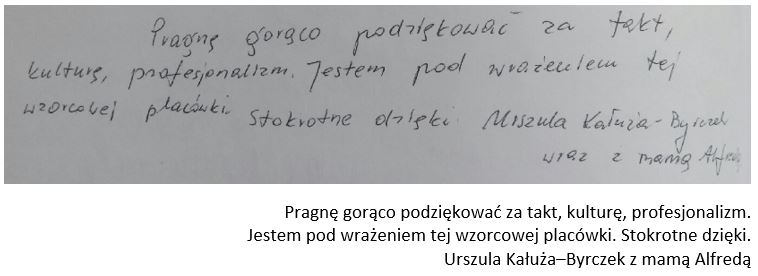 Pragnę gorąco podziękować za takt,
kulturę, profesjonalizm. Jestem pod wrażeniem tej
wzorcowej placówki. Stokrotne dzięki. Urszula Kałuża-Byrczek
wraz z mamą Alfredą
Pragnę gorąco podziękować za takt, kulturę, profesjonalizm.
Jestem pod wrażeniem tej wzorcowej placówki. Stokrotne dzięki.
Urszula Kałuża–Byrczek z mamą Alfredą